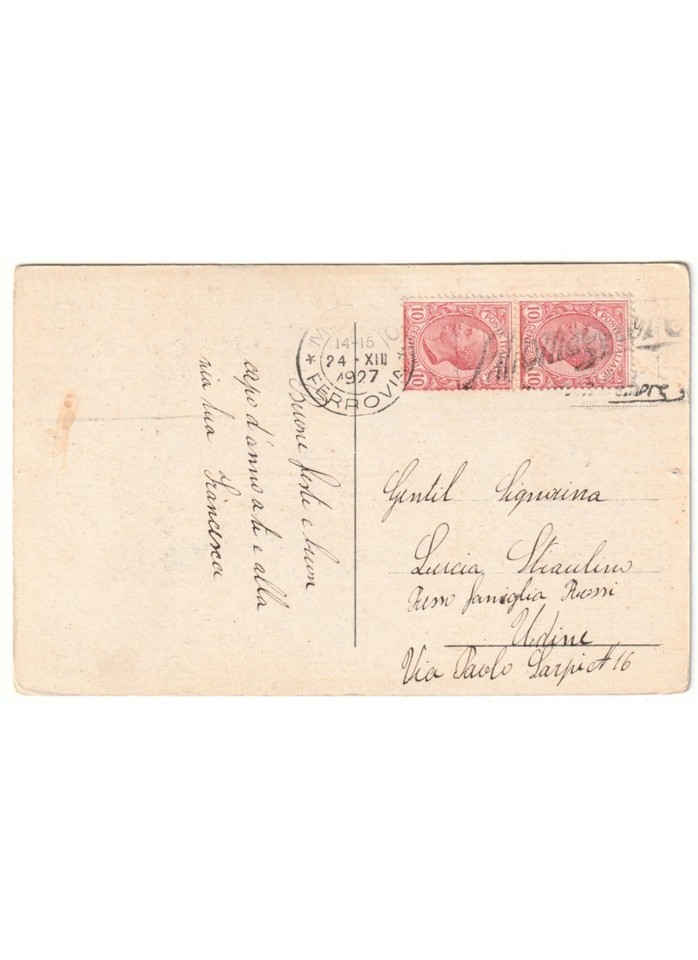 14-15
24 · XII
1927
FERROVIA
10 POSTE ITALIANE
10 POSTE ITALIANE
Buone feste e buon
capo d'anno a te e alla
tua Francesca
Gentil Signorina
Lucia Straulino
Presso famiglia Rossi
Udine
Via Paolo Sarpi N 16